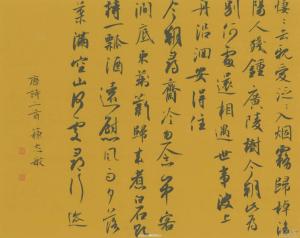 悽々去親愛泛々入烟霧歸棹洛
陽人殘鍾廣陵樹今朝此為
別何處還相遇世事波上
舟沿洄安得住
今朝郡齋冷忽念山中客
澗底束荊薪歸來煮白石欲
持一瓢酒遠慰風雨夕落
葉滿空山何處尋行迹
唐詩二首